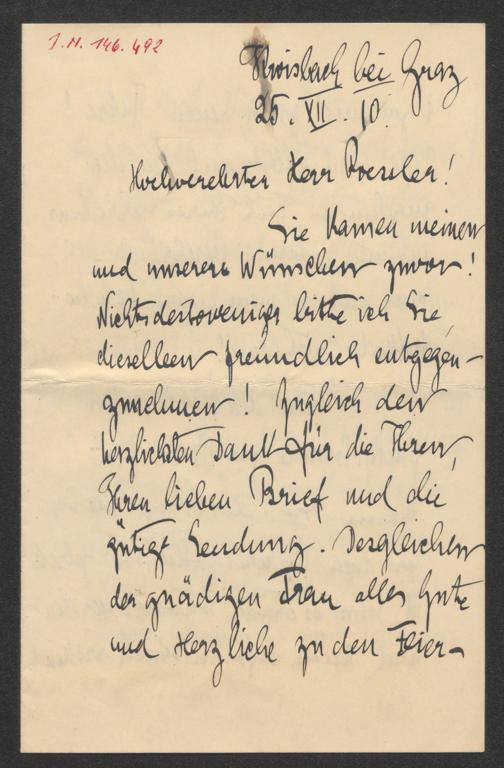 I.N. 146.492
Kroisbach bei Graz
25. XII. 10.
Hochverehrter Herr Roessler!
Sie kamen meinen
und unseren Wünschen zuvor!
Nichtsdestoweniger bitte ich Sie,
dieselben freundlich entgegen-
zunehmen! Zugleich den
herzlichsten Dank für die Ihren,
Ihren lieben Brief und die
gütige Sendung. Desgleichen
der gnädigen Frau alles Gute
und Herzliche zu den Feier-